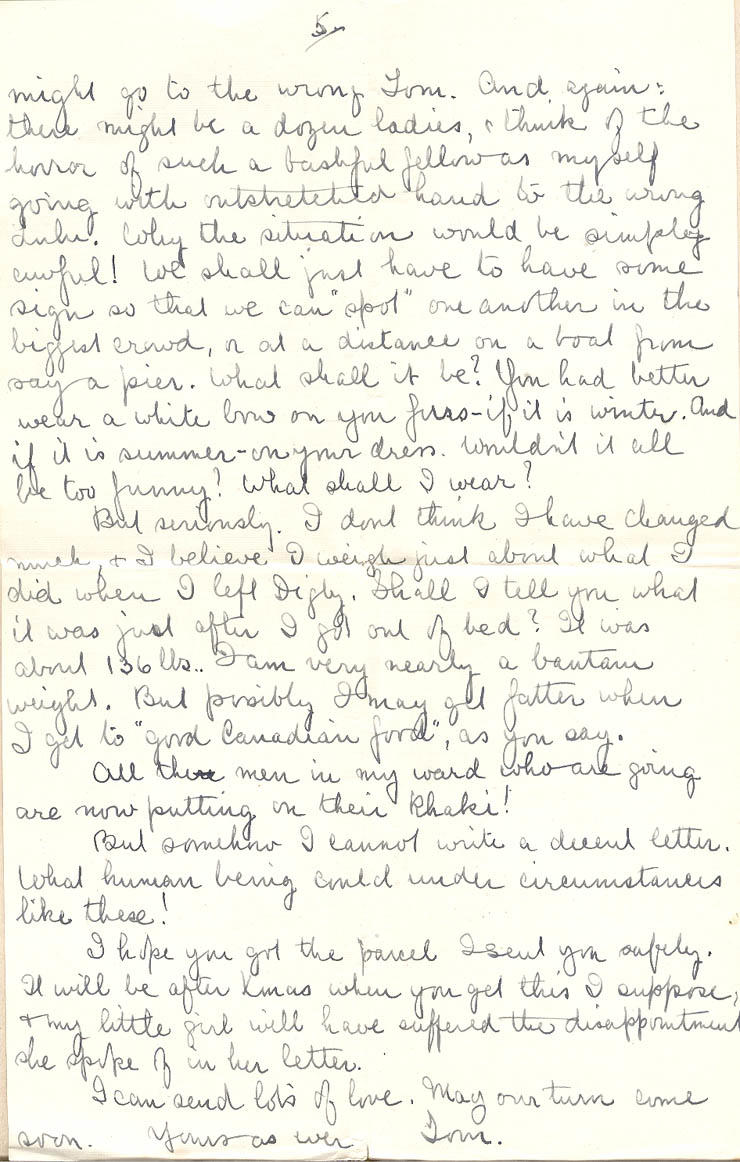 5
might go to the wrong Tom. And again:
there might be a dozen ladies, & think of the
horror of such a bashful fellow as myself
going with outstretched hand to the wrong
Lulu. Why the situation would be simpley
awful! We shall just have to have some
sign so that we can "spot" one another in the
biggest crowd, or at a distance on a boat from
say a pier. What shall it be? You had better
wear a white bow on you furs - if it is winter. And
if it is summer - on your dress. Wouldn't it all
be too funny? What shall I wear?
But seriously. I dont think I have changed
much, & I believe I weigh just about what I
did when I left Digby. Shall I tell you what
it was just after I got out of bed? It was
about 136 lbs.. I am very nearly a bantam
weight. But possibly I may get fatter when
I get to "good Canadian food", as you say.
All the men in my ward who are going
are now putting on their Khaki!
But somehow I cannot write a decent letter.
What human being could under circumstances
like these!
I hope you got the parcel I sent you safely.
It will be after Xmas when you get this I suppose,
& my little girl will have suffered the disappointment
she spoke of in her letter.
I can send lots of love. May our turn come
soon. Yours as ever Tom.